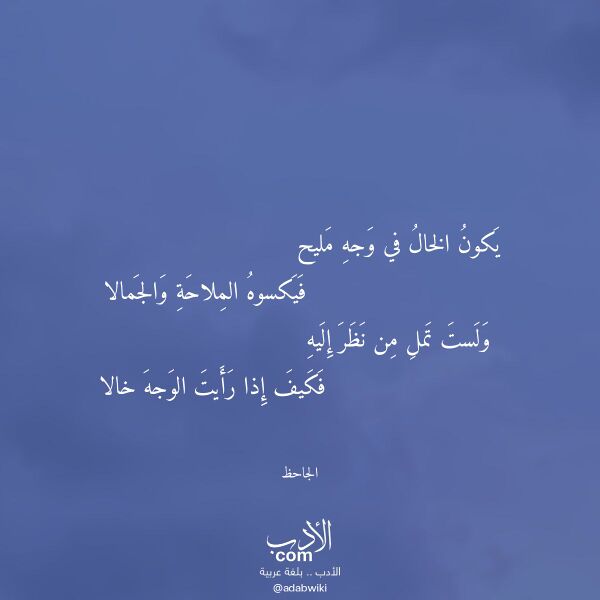 يَكونُ الخالُ في وَجهِ مَليح
فَيَكسوهُ المِلاحَةِ وَالجَمالا
وَلَستَ تَملِ مِن نَظَرَ إِلَيهِ
فَكَيفَ إِذا رَأَيتَ الوَجهَ خالا
الجاحظ
الأدب
com
الأدب .. بلغة عربية
@adabwiki